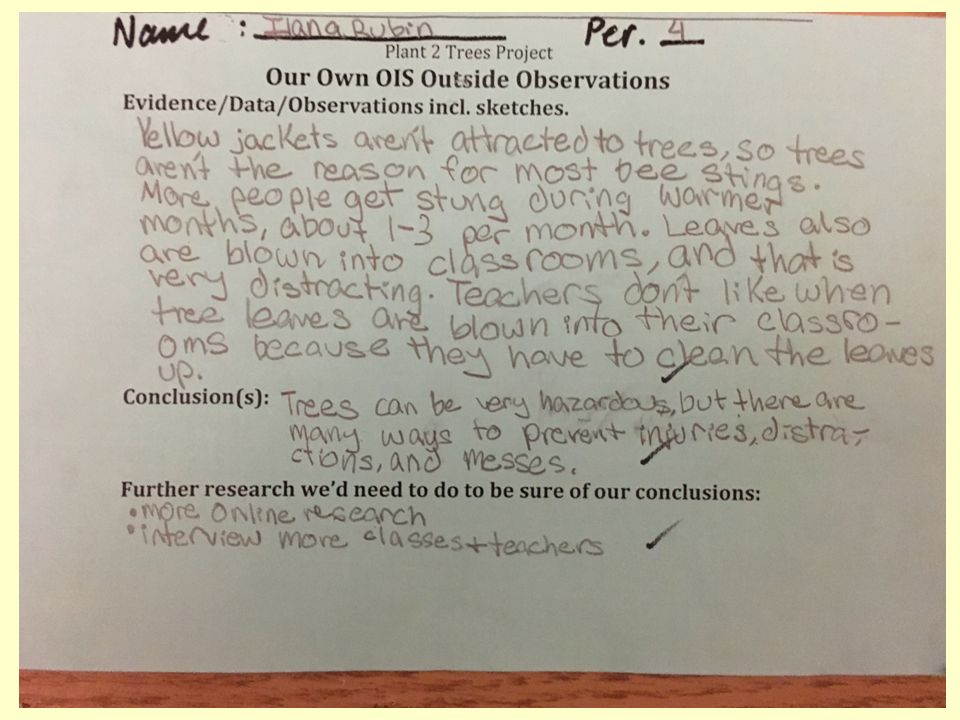 Name : Ilana Rubin Per. 4
Plant 2 Trees Project
Our Own OIS Outside Observations
Evidence/Data/Observations incl. sketches.
Yellow jackets aren't attracted to trees, so trees
aren't the reason for most bee stings.
More people get stung during warmer
months, about 1-3 per month. Leaves also
are blown into classrooms, and that is
very distracting. Teachers don't like when
tree leaves are blown into their classro-
oms because they have to clean the leaves
up.
Conclusion(s): Trees can be very hazardous, but there are
many ways to prevent injuries, distra-
ctions, and messes.
Further research we'd need to do to be sure of our conclusions:
• more online research
• interview more classes + teachers